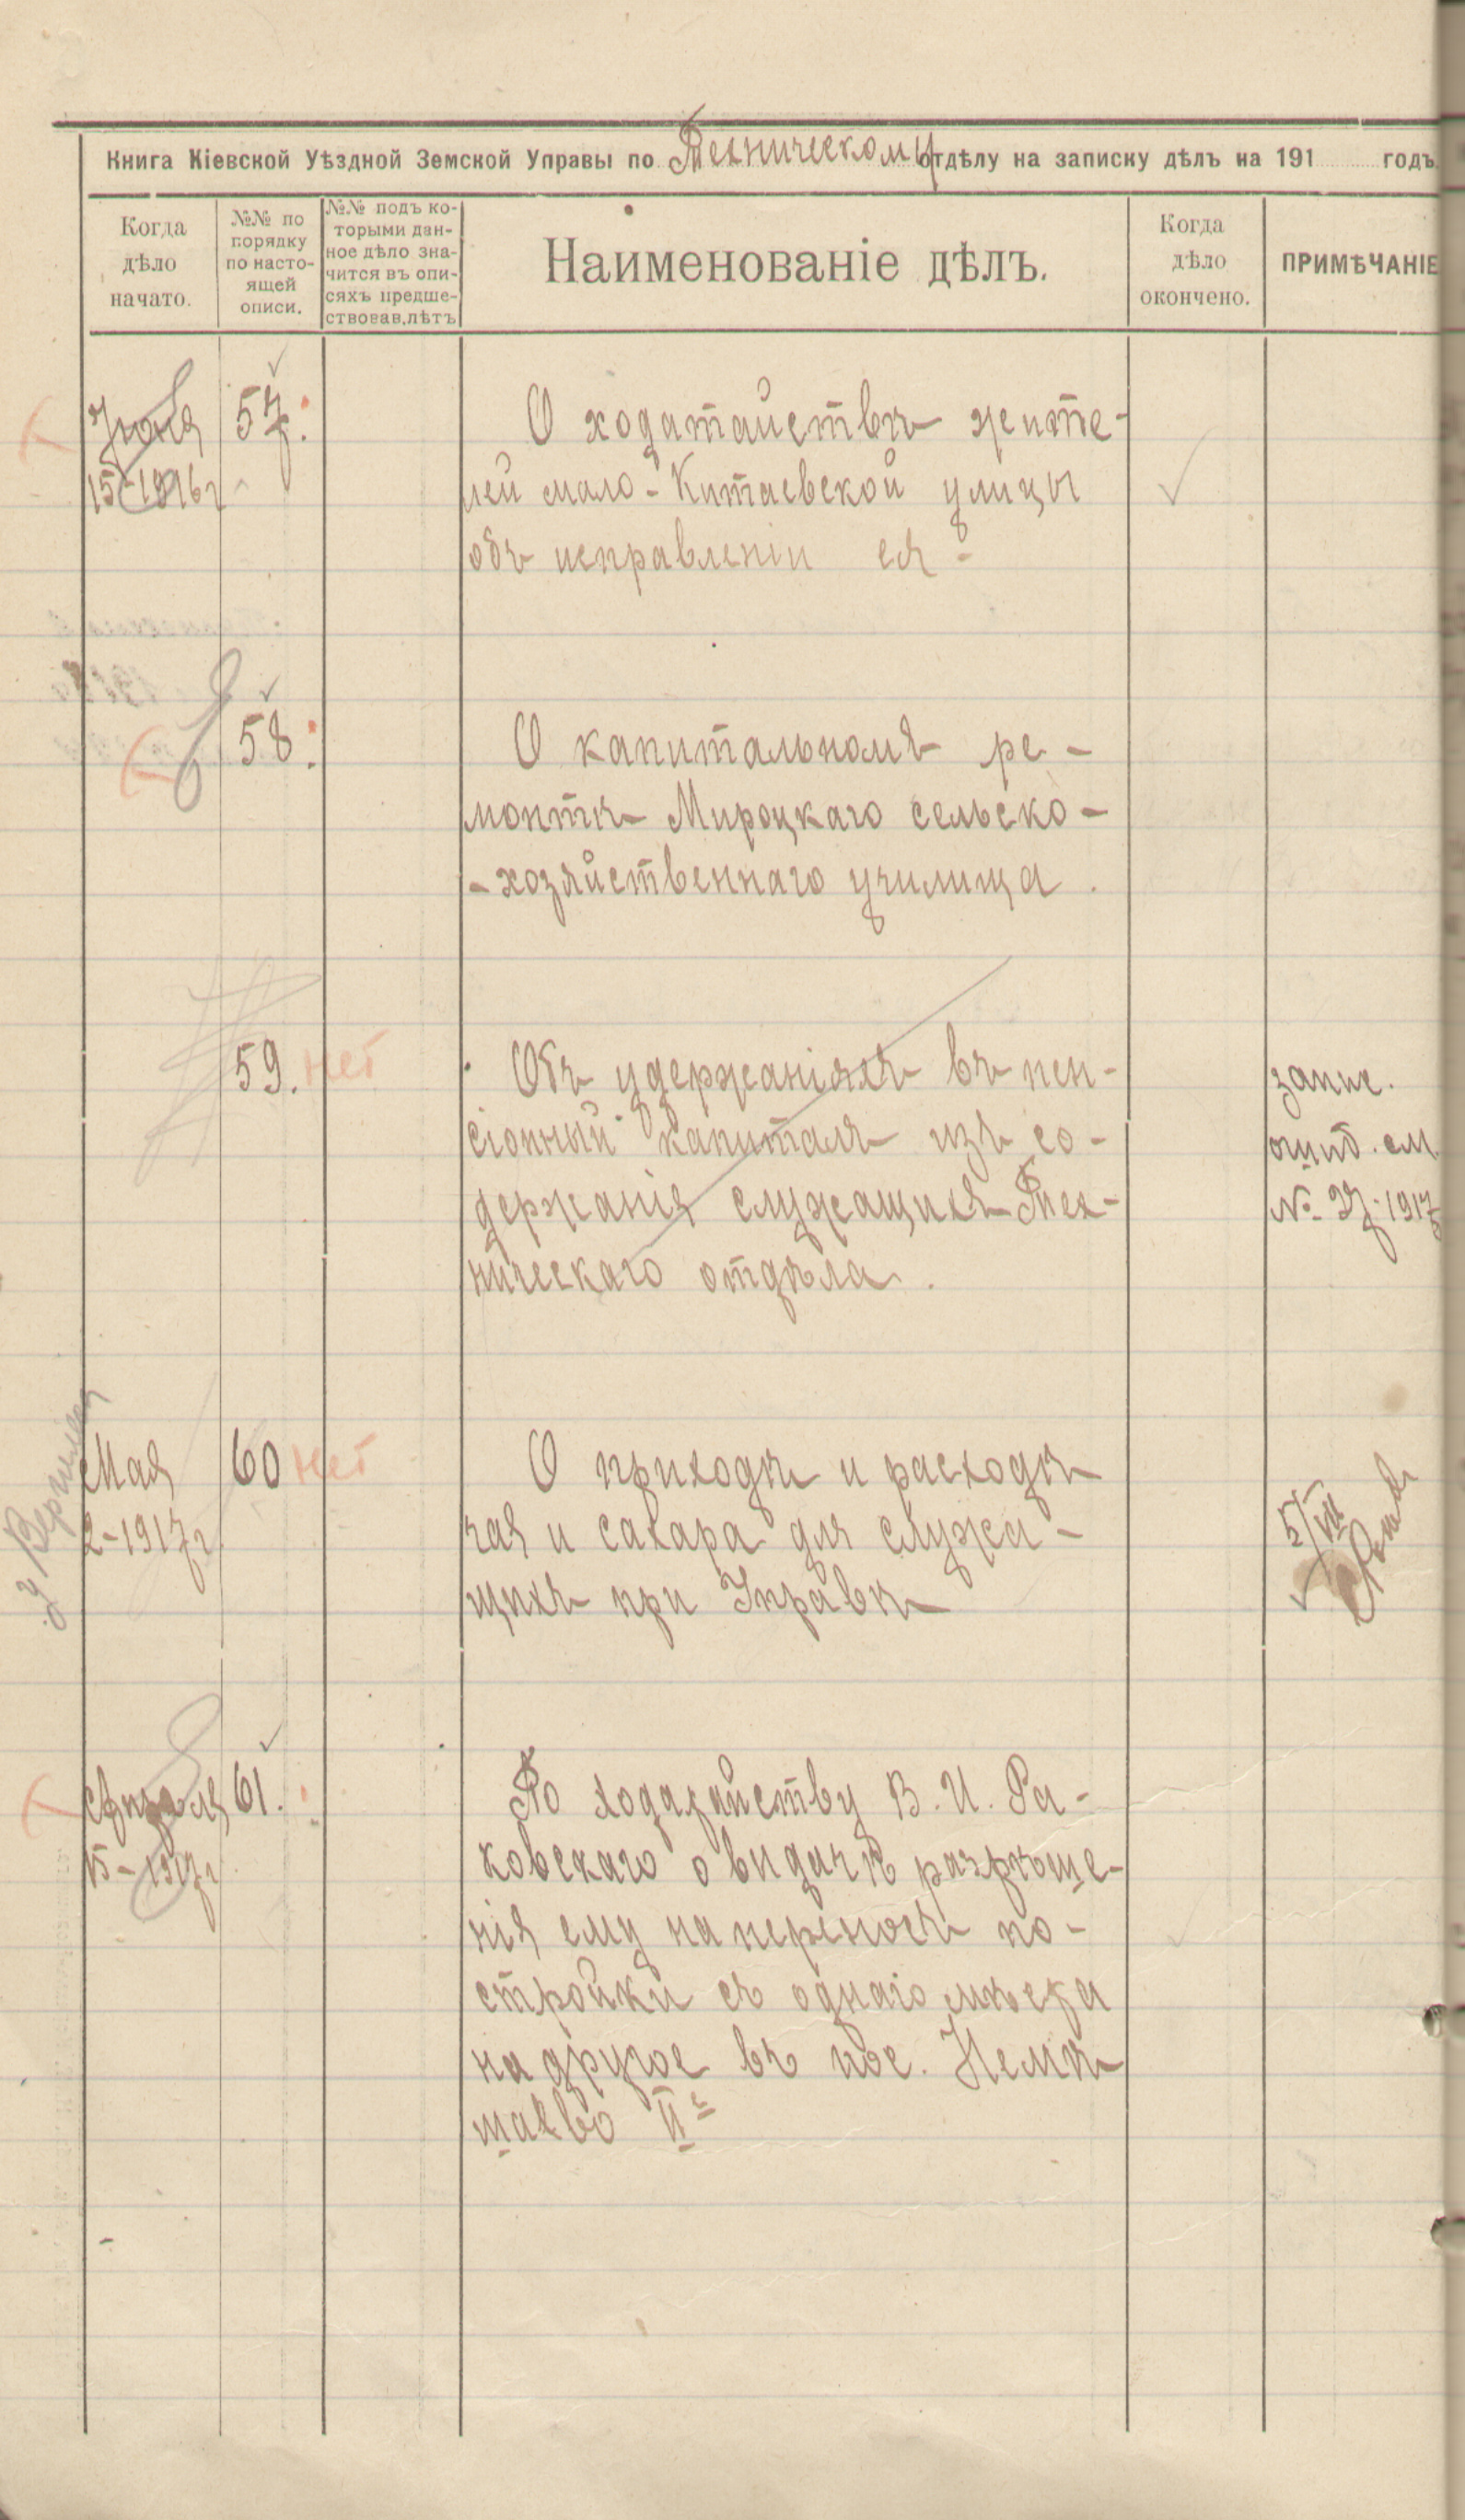 Книга Кіевской Уѣздной Земской Управы по Техническому отдѣлу на записку дѣлъ на 191 годъ
Когда
дѣло
начато.
№№ по
порядку
по насто-
ящей
описи.
№№ подъ ко-
торыми дан-
ное дѣло зна-
чится въ опи-
сяхъ предше-
ствовав.лѣтъ
Наименованіе дѣлъ.
Когда
дѣло
окончено.
ПРИМѢЧАНІЕ
Іюня
15-1916 г
57.
О ходатайствѣ жите-
лей мало-Китаевской улицы
объ исправленіи ея-
58.
О капитальномъ ре-
монтѣ Мироцкаго сельско-
-хозяйственнаго училища.
59. нет
Объ удержаніяхъ въ пен-
сіонный капиталъ изъ со-
держанія служащихъ Тех-
ническаго отдѣла.
запис.
ошиб. см
№ 27-1917
Мая
2-1917 г
60 нет
О приходѣ и расходѣ
чая и сахара для служа-
щихъ при Управѣ
5/VII
Апрѣля
15-1917 г
61.
По ходатайству В. И. Ра-
ковскаго о видачѣ разрѣше-
нія ему на переносъ по-
стройки съ однаго мѣста
на другое въ пос. Немѣ
шаево II